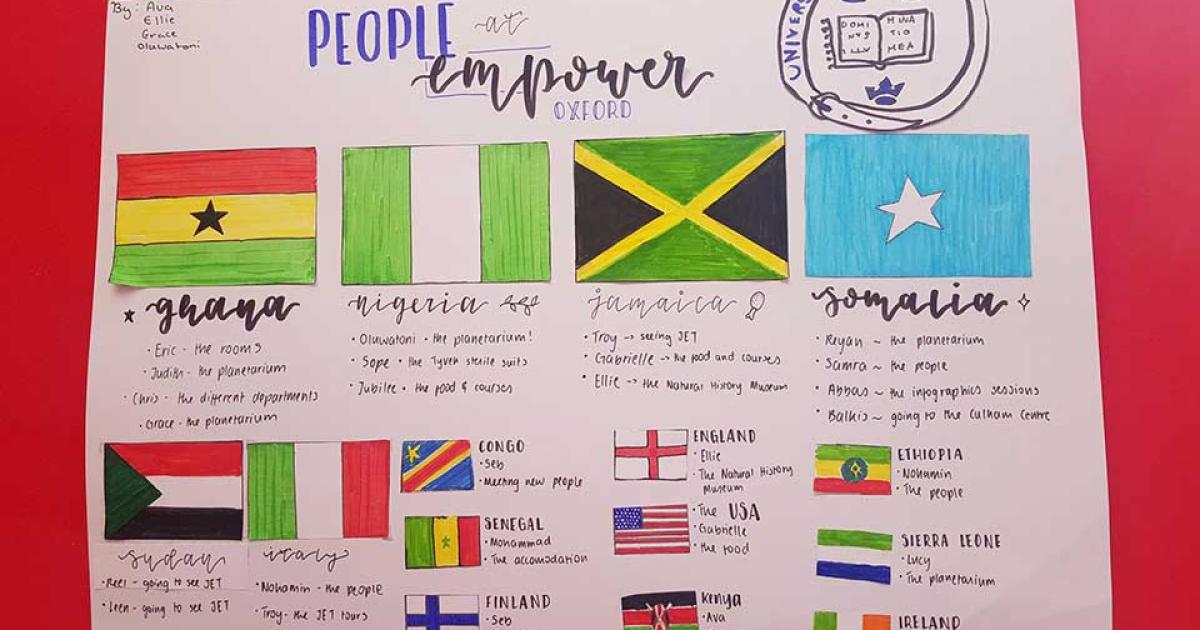 By: Ava
Ellie
Grace
Oluwatoni
PEOPLE at
empower
OXFORD
UNIVERS
DOMI
NVS
ILLV
MINA
TIO
MEA
ghana
• Eric - the rooms
• Judith - the planetarium
• Chris - the different departments
• Grace - the planetarium
nigeria
• Oluwatoni • the planetarium!
• Sope • the Tyvek sterile suits
• Jubilee • the food & courses
jamaica
• Troy -> seeing JET
• Gabrielle -> the food and courses
• Ellie -> the Natural History Museum
somalia
• Reyan ~ the planetarium
• Samra ~ the people
• Abbas ~ the infographics sessions
• Balkis ~ going to the Culham Centre
sudan
• Reel - going to see JET
• Leen - going to see JET
italy
• Nohamin - the people
• Troy - the JET tours
CONGO
• Seb
• Meeting new people
SENEGAL
• Mohammad
• The accomodation
FINLAND
• Seb
ENGLAND
• Ellie
• The Natural History
Museum
• The USA
• Gabrielle
• the food
Kenya
• Ava
ETHIOPIA
• Nohamin
• The people
SIERRA LEONE
• Lucy
• The planetarium
IRELAND